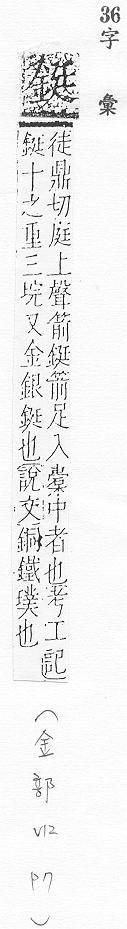 36
字 彙
鋌
徒鼎切庭上聲箭鋌箭足入槀中者也考工記
鋌十之重三垸又金銀鋌也說文銅鐵璞也
(金部 V12 P7)